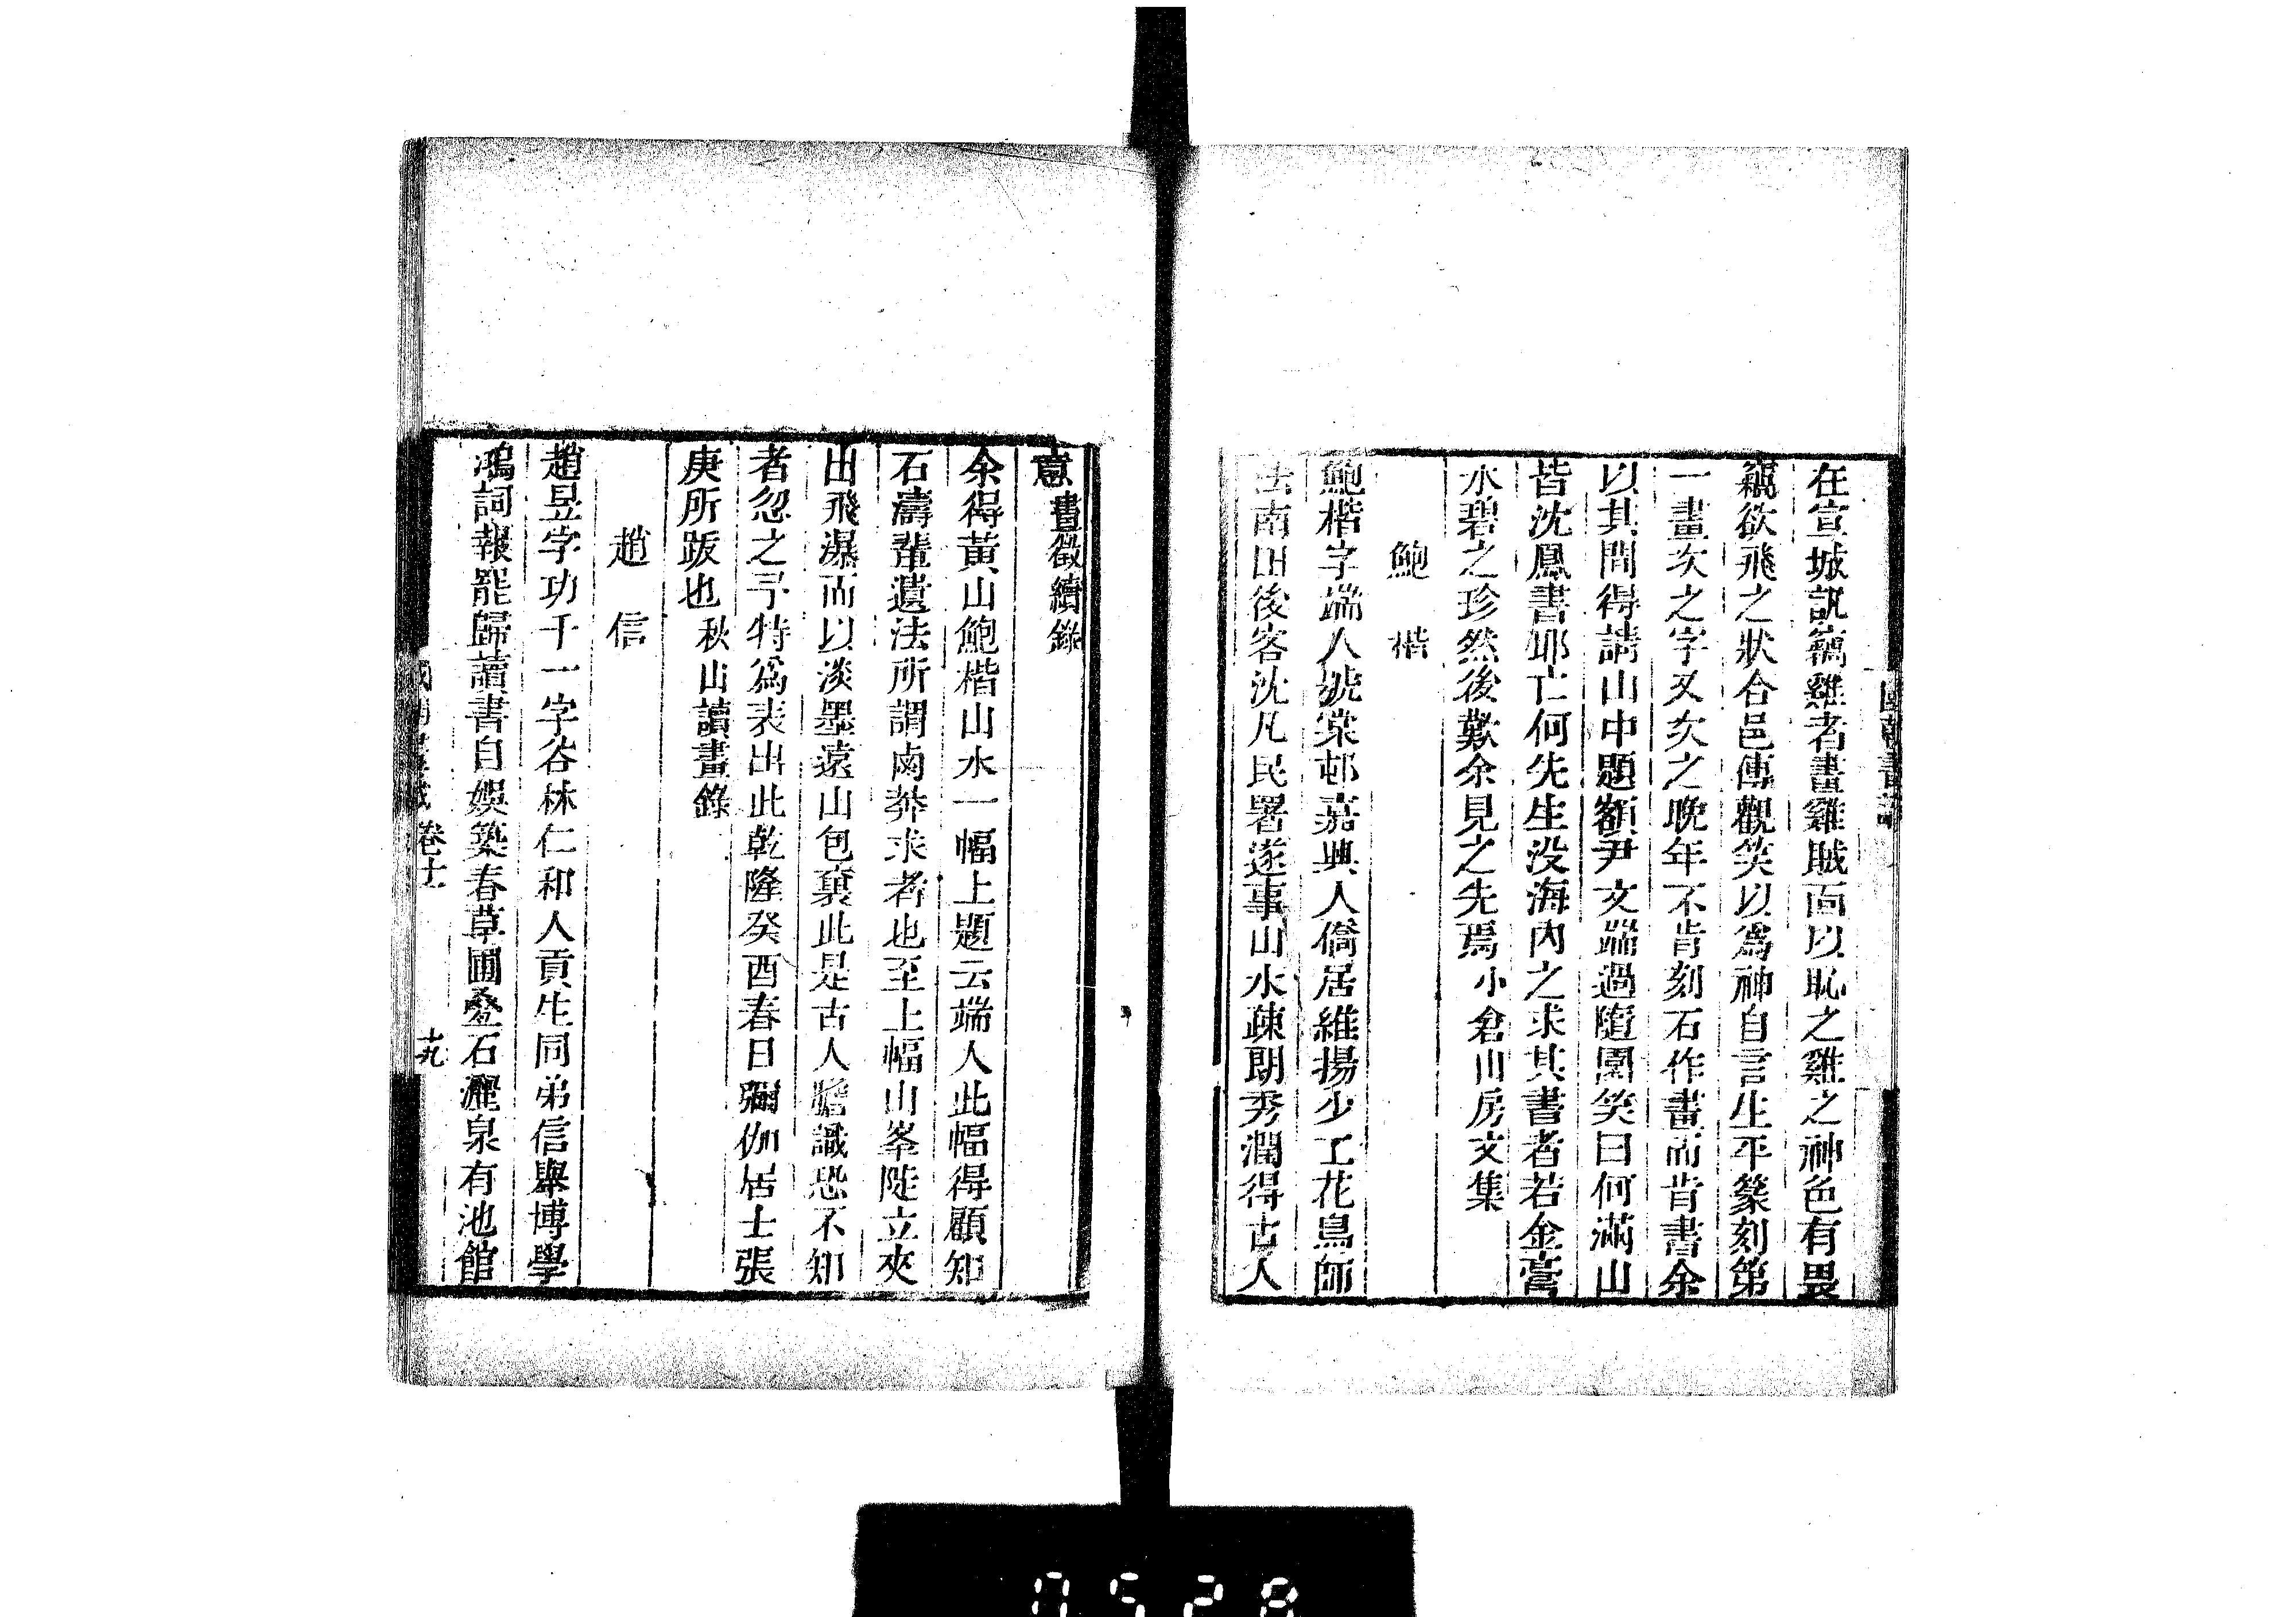 在宣城訊竊雞者畫雞賊面以恥之雞之神色有畏
竊欲飛之狀合邑傳觀笑以為神自言生平篆刻第
一畫次之字又次之晚年不肯刻石作畫而肯書余
以其間得請山中題額尹文端過隨園笑曰何滿山
皆沈鳳書耶亡何先生没海內之求其書者若金膏
水碧之珍然後歎余見之先焉 小倉山房文集
鮑楷
鮑楷字端人號棠邨嘉興人僑居維揚少工花鳥師
法南田後客沈凡民署遂事山水疎朗秀潤得古人
意 畫徵續錄
余得黃山鮑楷山水一幅上題云端人此幅得顧知
石濤輩遺法所謂鹵莽求者也至上幅山峯陡立夾
出飛瀑而以淡墨遠山包裹此是古人膽識恐不知
者忽之予特為表出此乾隆癸酉春日彌伽居士張
庚所跋也 秋山讀畫錄
趙信
趙昱字功千一字谷林仁和人貢生同弟信舉博學
鴻詞報罷歸讀書自娛築春草園叠石灑泉有池館
卷十 十九
0528